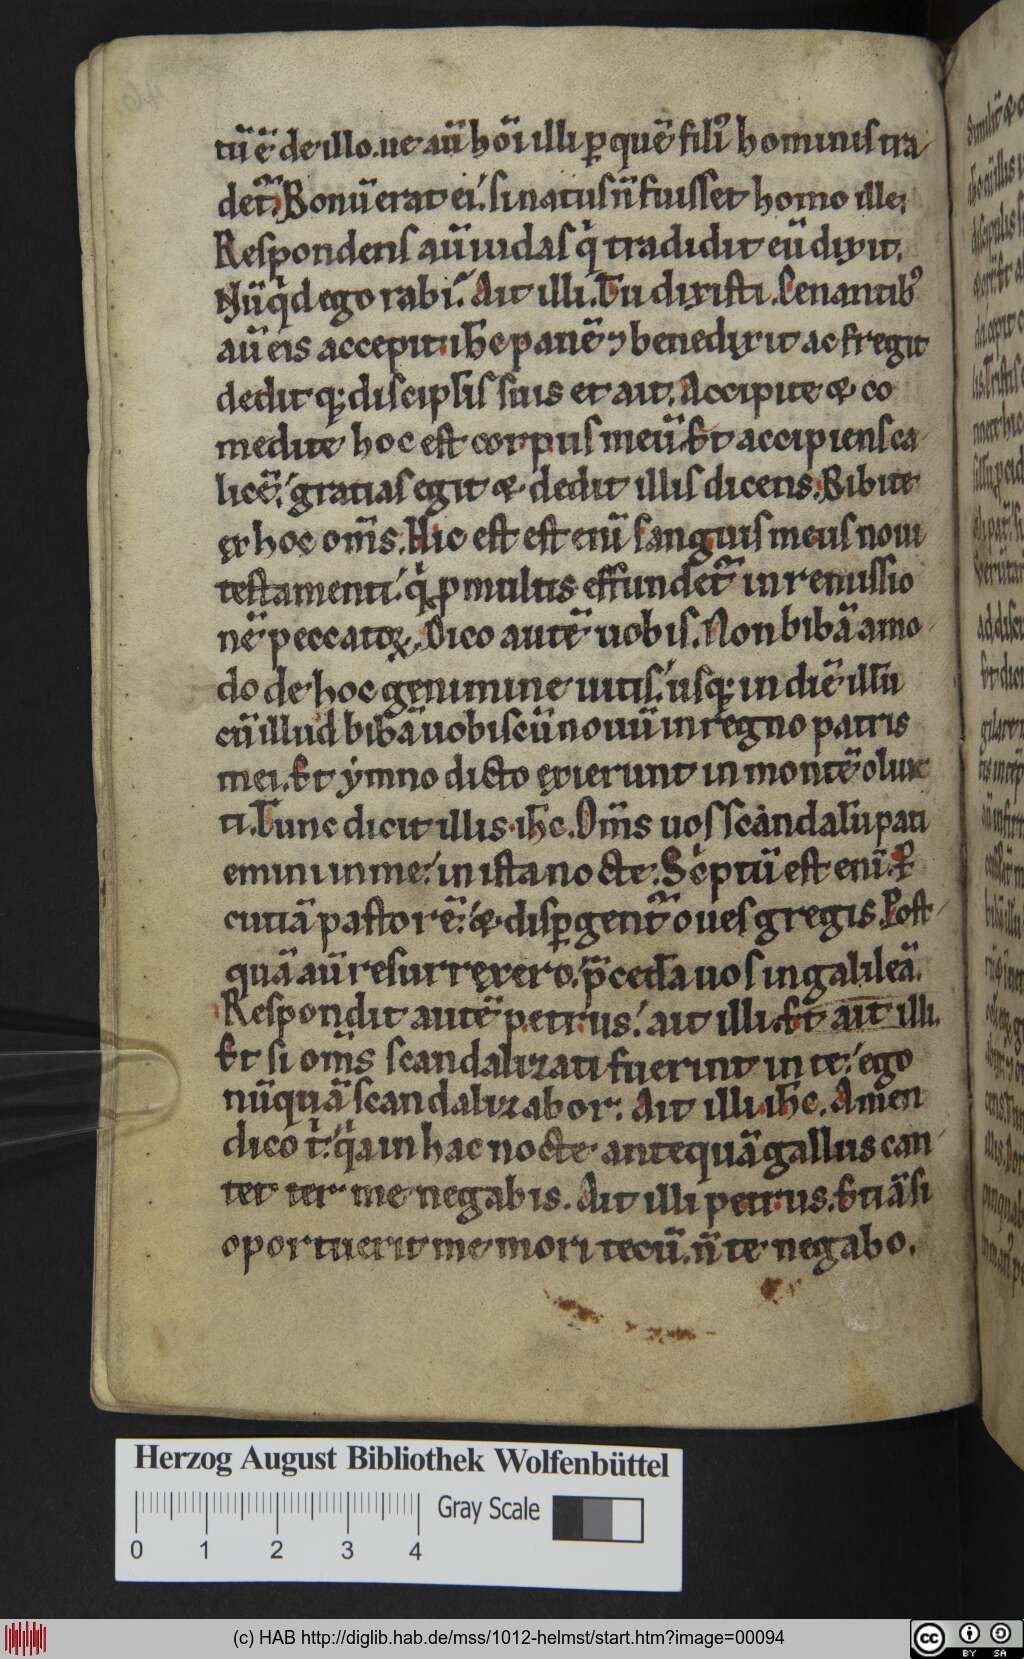 tū ē de illo. ue aū hōi illi ꝑ quē filiꝰ hominis tra
det᷑. Bonū erat ei. si natus n̄ fuisset homo ille.
Respondens aū iudas q̇ tradidit eū dixit.
Nūq̇d ego rabi. Ait illi. Tu dixisti. Cenantibꝰ
aū eis accepit ih̄c panē ⁊ benedixit ac fregit
dedit qꝫ discipl̄is suis et ait. Accipite & co
medite hoc est corpus meū. Et accipiens ca
licē. gratias egit & dedit illis dicens. Bibite
ex hoc om̄s. Hic est est enī sanguis meus noui
testamenti. q̇ ꝓ multis effundet᷑ in remissio
nē peccatoꝝ. Dico autē uobis. Non bibā amo
do de hoc genimine uitis. usqꝫ in diē illū
cū illud bibā uobiscū nouū in regno patris
mei. Et ymno dicto exierunt in montē oliue
ti. Tunc dicit illis ih̄c. Om̄s uos scandalū pati
emini in me. in ista nocte. Sċptū est enī. P̄
cutiā pastorē. & disꝑgent᷑ oues gregis. Post
quā aū resurrexero. p̄cedā uos in galileā.
Respondit autē petrus. ait illi. Et ait illi.
Et si om̄s scandalizati fuerint in te. ego
nūquā scandalizabor. Ait illi ih̄c. Amen
dico ṫ. q̇a in hac nocte antequā gallus can
tet ter me negabis. Ait illi petrus. Etiā si
oportuerit me mori tecū. n̄ te negabo.
Herzog August Bibliothek Wolfenbüttel
Gray Scale
0 1 2 3 4
(c) HAB http://diglib.hab.de/mss/1012-helmst/start.htm?image=00094
cc BY SA